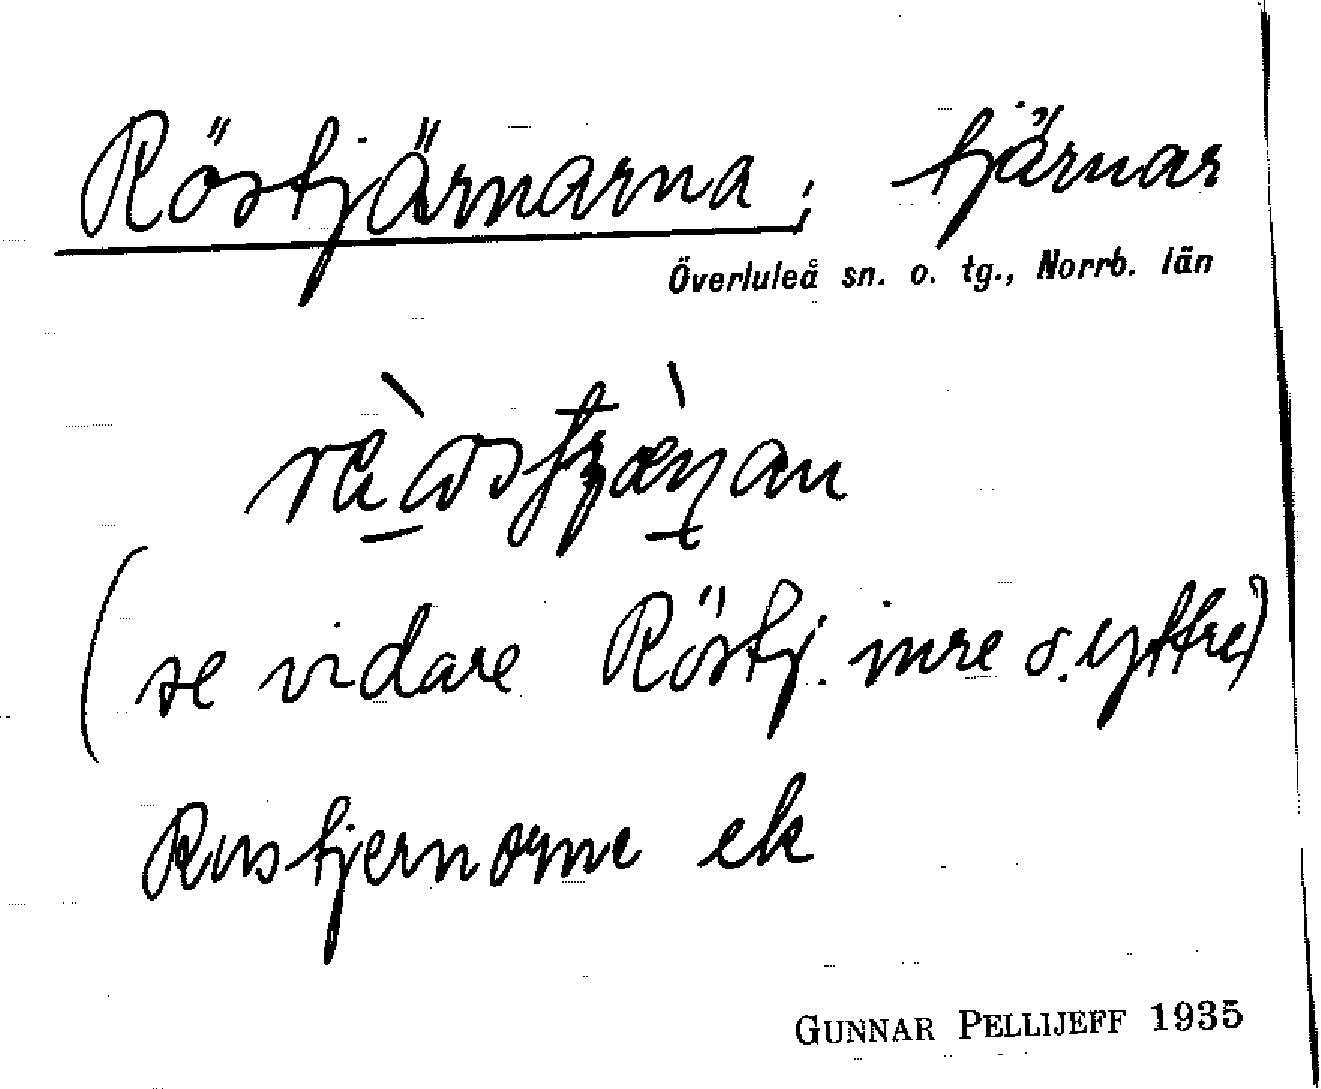 Röstjärnarna; tjärnar
Överluleå sn. o. tg., Norrb. län
(se vidare Röstj. inre o. yttre)
Rustjernorne ek
GUNNAR PELLIJEFF 1935